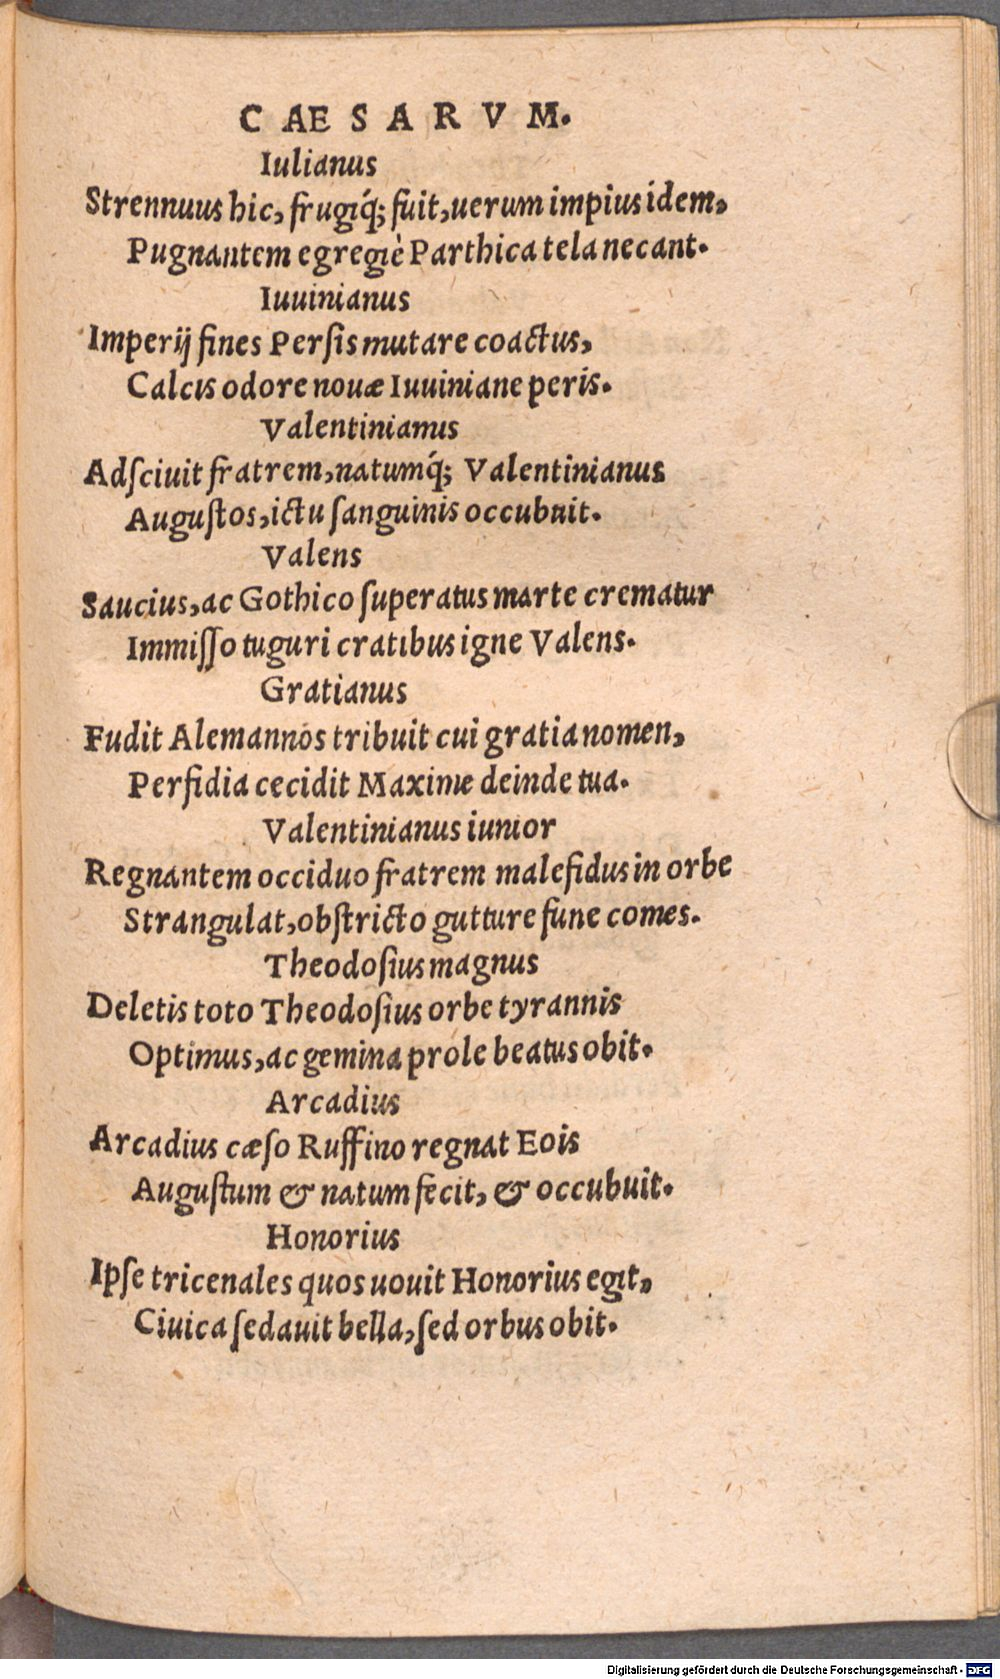 CAESARVM.
Iulianus
Strennuus hic, frugiq́; fuit, uerum impius idem,
Pugnantem egregiè Parthica tela necant.
Iuuinianus
Imperij fines Persis mutare coactus,
Calcis odore nouæ Iuuiniane peris.
Valentinianus
Adsciuit fratrem, natumq́; Valentinianus
Augustos, ictu sanguinis occubuit.
Valens
Saucius, ac Gothico superatus marte crematur
Immisso tuguri cratibus igne Valens.
Gratianus
Fudit Alemannos tribuit cui gratia nomen,
Perfidia cecidit Maxime deinde tua.
Valentinianus iunior
Regnantem occiduo fratrem malefidus in orbe
Strangulat, obstricto gutture fune comes.
Theodosius magnus
Deletis toto Theodosius orbe tyrannis
Optimus, ac gemina prole beatus obit.
Arcadius
Arcadius cæso Ruffino regnat Eois
Augustum & natum fecit, & occubuit.
Honorius
Ipse tricenales quos uouit Honorius egit,
Ciuica sedauit bella, sed orbus obit.
Digitalisierung gefördert durch die Deutsche Forschungsgemeinschaft - DFG